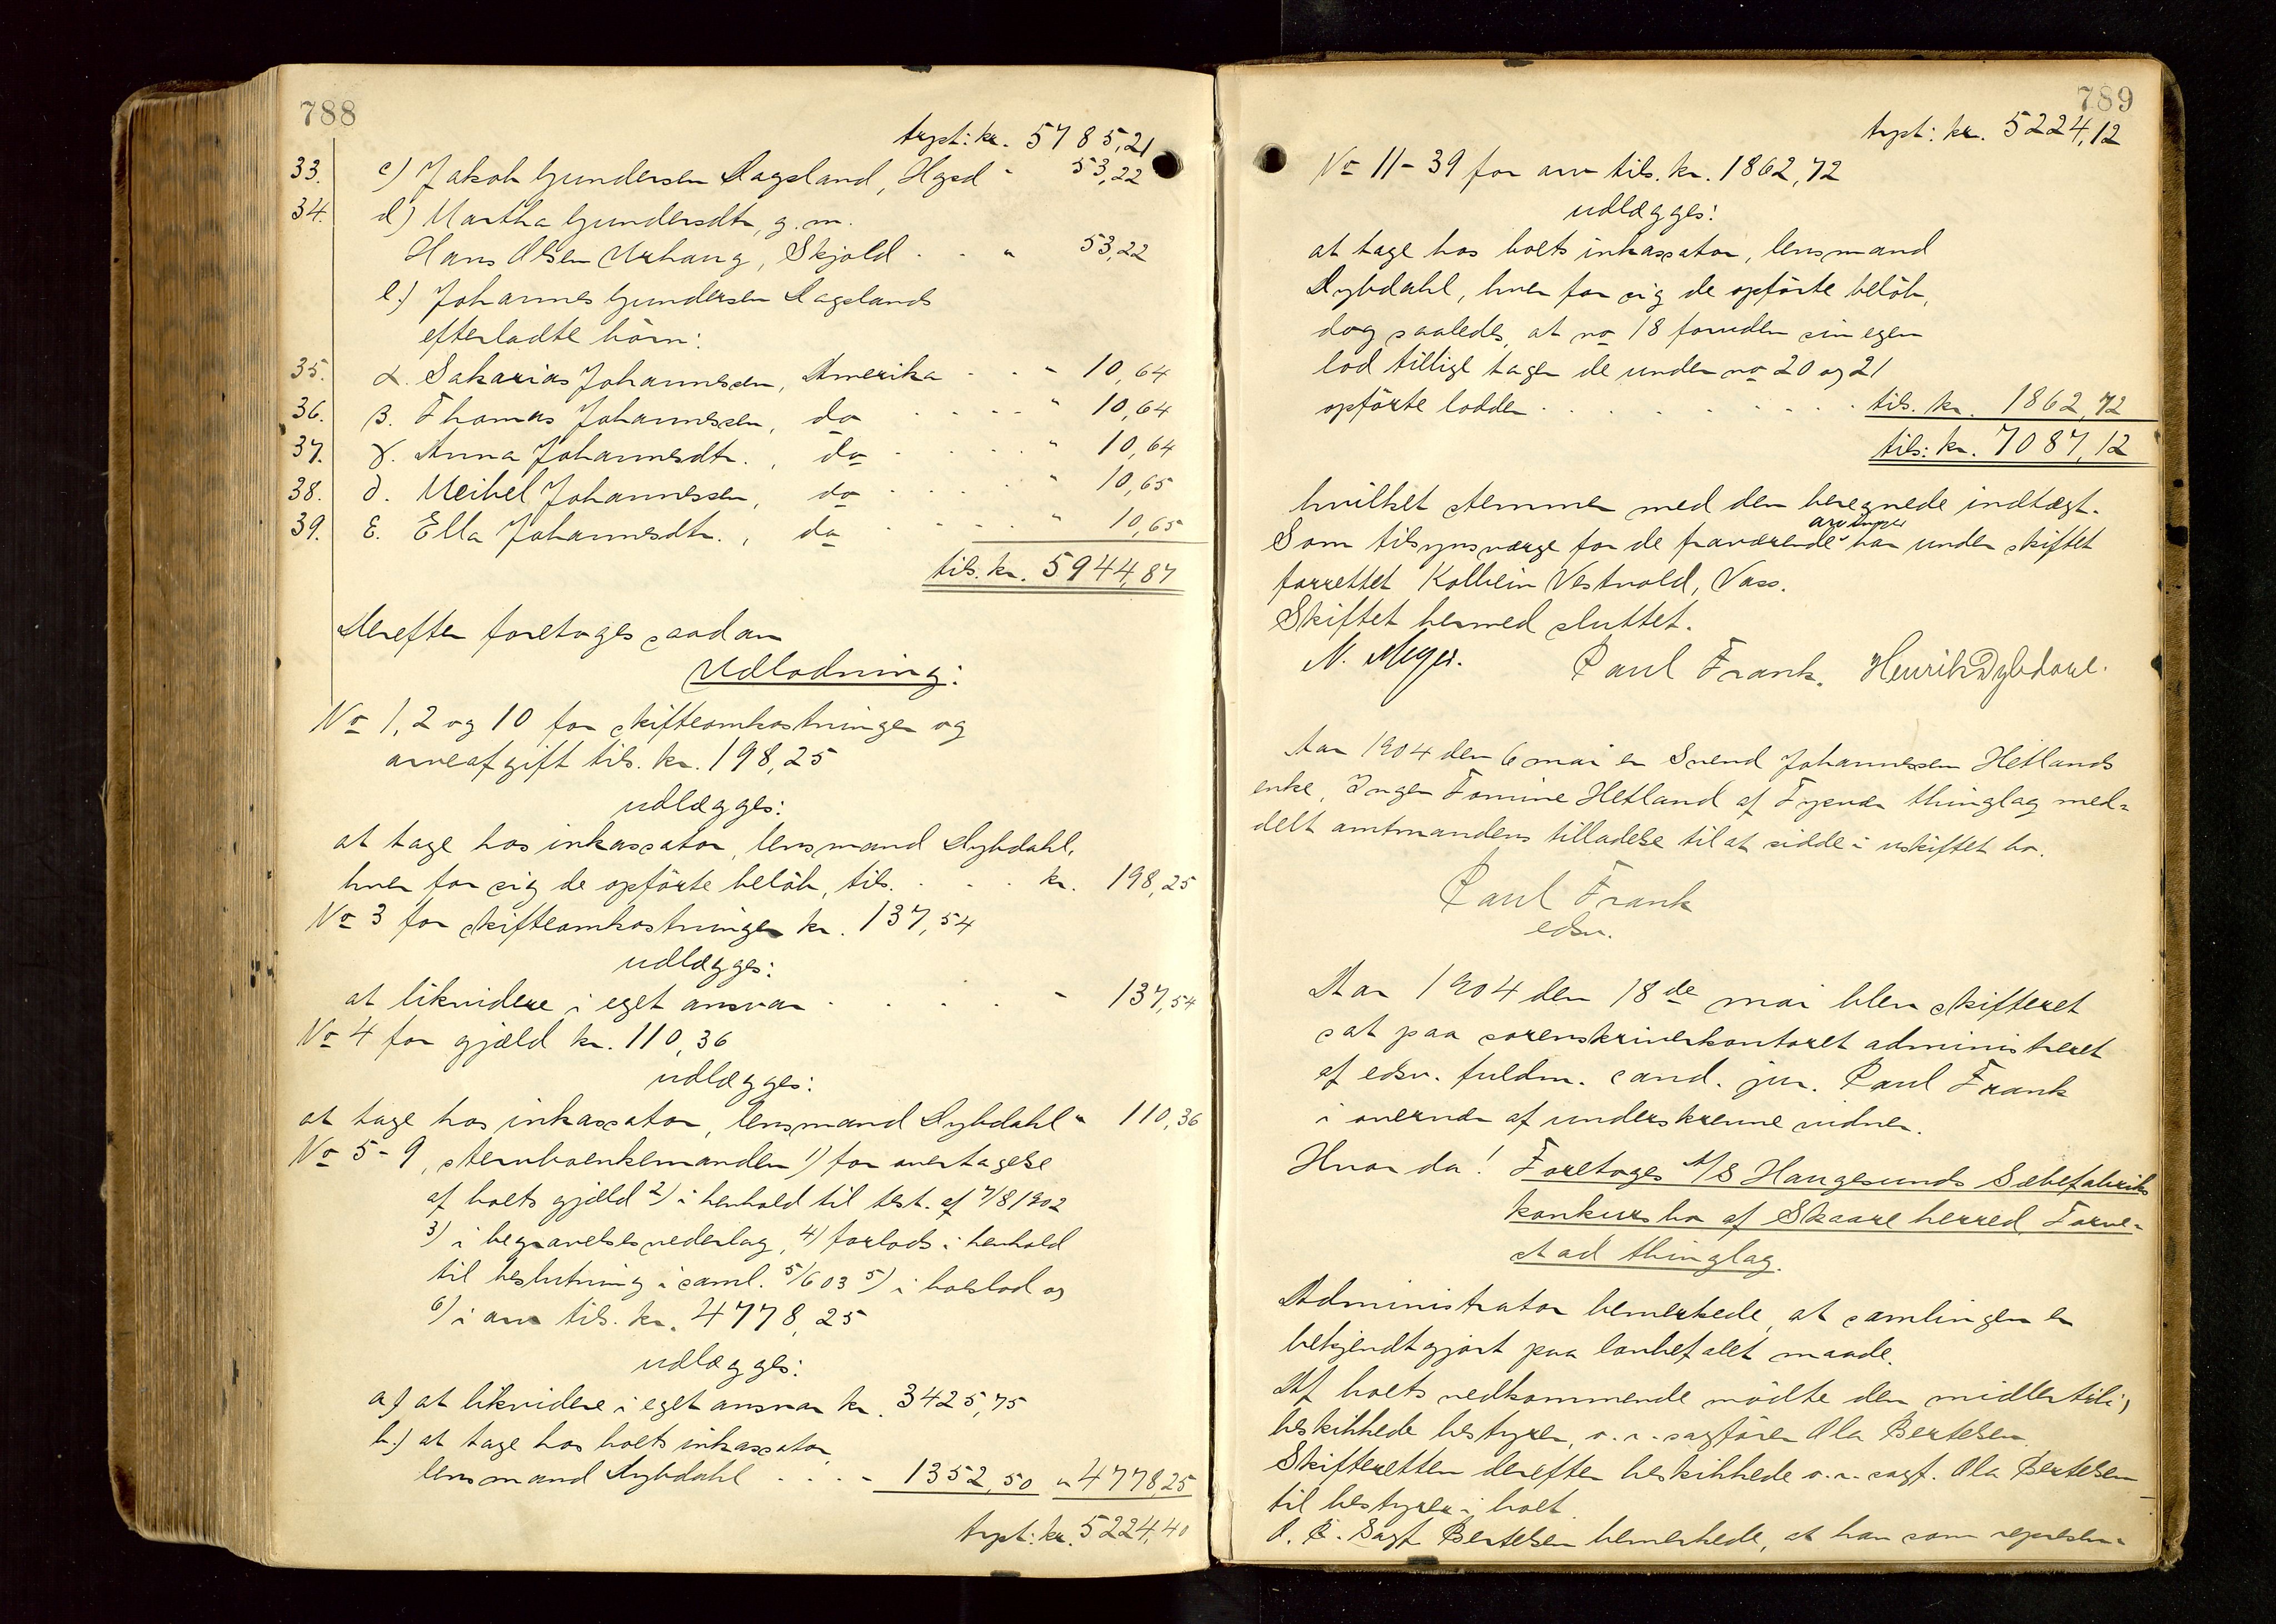 788
trspt: kr. 5785,21
33. c) Jakob Gundersen Dagsland, Hgsd " 53,22
34. d) Martha Gundersdtr, g. m.
Hans Olsen Urhaug, Skjold . . " 53,22
e.) Johannes Gundersen Dagslands
efterladte börn:
35. α. Sakarias Johannesen, Amerika . . " 10,64
36. β. Thomas Johannessen, do . . . . " 10,64
37. γ. Anna Johannesdtr., do . . . . " 10,64
38. δ. Meibel Johannessen, do . . . . " 10,65
39. ε. Ella Johannesdtr., do . . . . " 10,65
tils. kr. 5944,87
Derefter foretoges saadan
Udlodning:
No 1, 2 og 10 for skifteomkostninger og
arveafgift tils. kr. 198,25
udlægges:
at tage hos inkassator, lensmand Dybdahl,
hver for sig de opförte belöb, tils. . . . kr. 198,25
No 3 for skifteomkostninger kr. 137,54
udlægges:
at likvidere i eget ansvar . . . . " 137,54
No 4 for gjæld kr. 110,36
udlægges:
at tage hos inkassator, lensmand Dybdahl " 110,36
No 5-9, stervboenkemanden 1) for overtagelse
af boets gjæld 2) i henhold til test. af 7/8 1902
3) i begravelsesvederlag, 4) forlods i henhold
til beslutning i saml. 5/6 03 5) i boslod og
6) i arv tils. kr. 4778,25
udlægges:
a) at likvidere i eget ansvar kr. 3425,75
b.) at tage hos boets inkassator,
lensmand Dybdahl . . . " 1352,50 " 4778,25
trspt: kr. 5224,40
789
trspt: kr. 5224,12
No 11-39 for arv tils. kr. 1862,72
udlægges:
at tage hos boets inkassator, lensmand
Dybdahl, hver for sig de opförte belöb,
dog saaledes, at no 18 foruden sin egen
lod tillige tager de under no 20 og 21
opförte lodder . . . . . . . . tils. kr. 1862,72
tils: kr. 7087,12
hvilket stemmer med den beregnede indtægt.
Som tilsynsværge for de fraværende arvinger har under skiftet
forrettet Kolbein Vestvold, Vass.
Skiftet hermed sluttet.
N. Meyer. Paul Frank. Henrik Dybdahl.
Aar 1904 den 6 mai er Svend Johannessen Hetlands
enke, Inger Tomine Hetland af Tysvær thinglag med=
delt amtmandens tilladelse til at sidde i uskiftet bo.
Paul Frank
edsv.
Aar 1904 den 18de mai blev skifteret
sat paa sorenskriverkontoret administreret
af edsv. fuldm. cand. jur. Paul Frank
i overvær af underskrevne vidner.
Hvor da! Foretoges A/S Haugesunds Sæbefabriks
konkursbo af Skaare herred, Torve=
stad thinglag.
Administrator bemerkede, at samlingen er
bekjendtgjort paa lovbefalet maade.
Af boets vedkommende mödte den midlertidig
beskikkede bestyrer, o. r. sagförer Ola Bertelsen.
Skifteretten derefter beskikkede o. r. sagf. Ola Bertelsen
til bestyrer i boet.
O. R. Sagf. Bertelsen bemerkede, at han som represen=